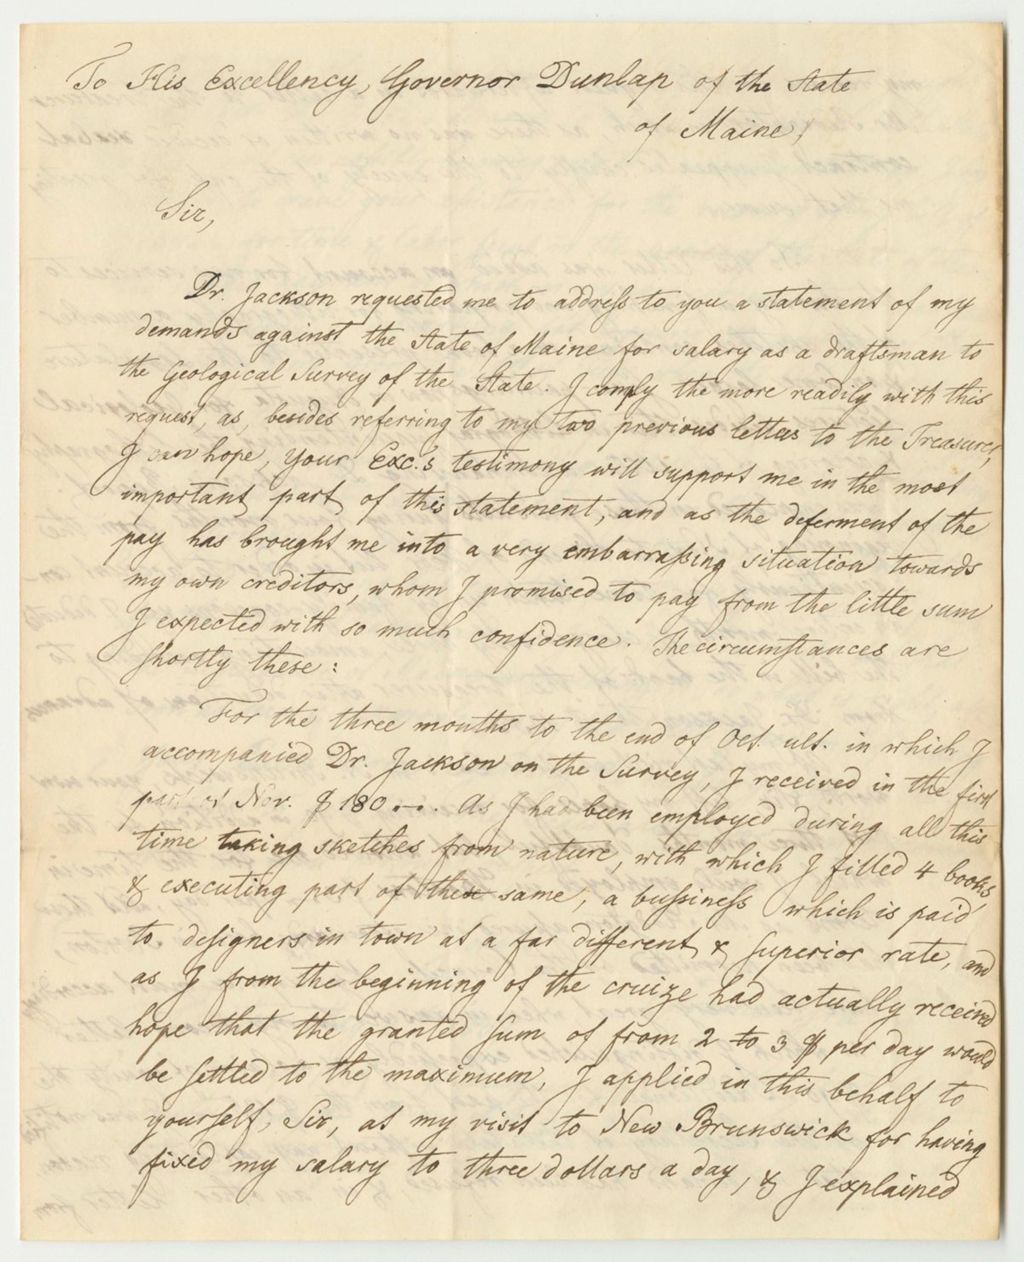 To His Excellency, Governor Dunlap of the State
of Maine,
Sir,
Dr. Jackson requested me to address to you a statement of my
demands against the State of Maine for salary as a draftsman to
the Geological Survey of the State. I comply the more readily with this
request, as, besides referring to my two previous letters to the Treasurer,
I can hope, Your Exc.'s testimony will support me in the most
important part of this statement, and as the deferment of the
pay has brought me into a very embarrassing situation towards
my own creditors, whom I promised to pay from the little sum
I expected with so much confidence. The circumstances are
shortly these:
For the three months to the end of Oct. ult. in which I
accompanied Dr. Jackson on the Survey, I received in the first
part of Nov. $180 —. As I had been employed during all this
time taking sketches from nature, with which I filled 4 books,
& executing part of the same, a bussiness which is paid
to designers in town at a far different & superior rate, and
as I from the beginning of the cruize had actually received
hope that the granted sum of from 2 to 3 $ per day would
be settled to the maximum, I applied in this behalf to
yourself, Sir, at my visit to New Brunswick for having
fixed my salary to three dollars a day, & I explained